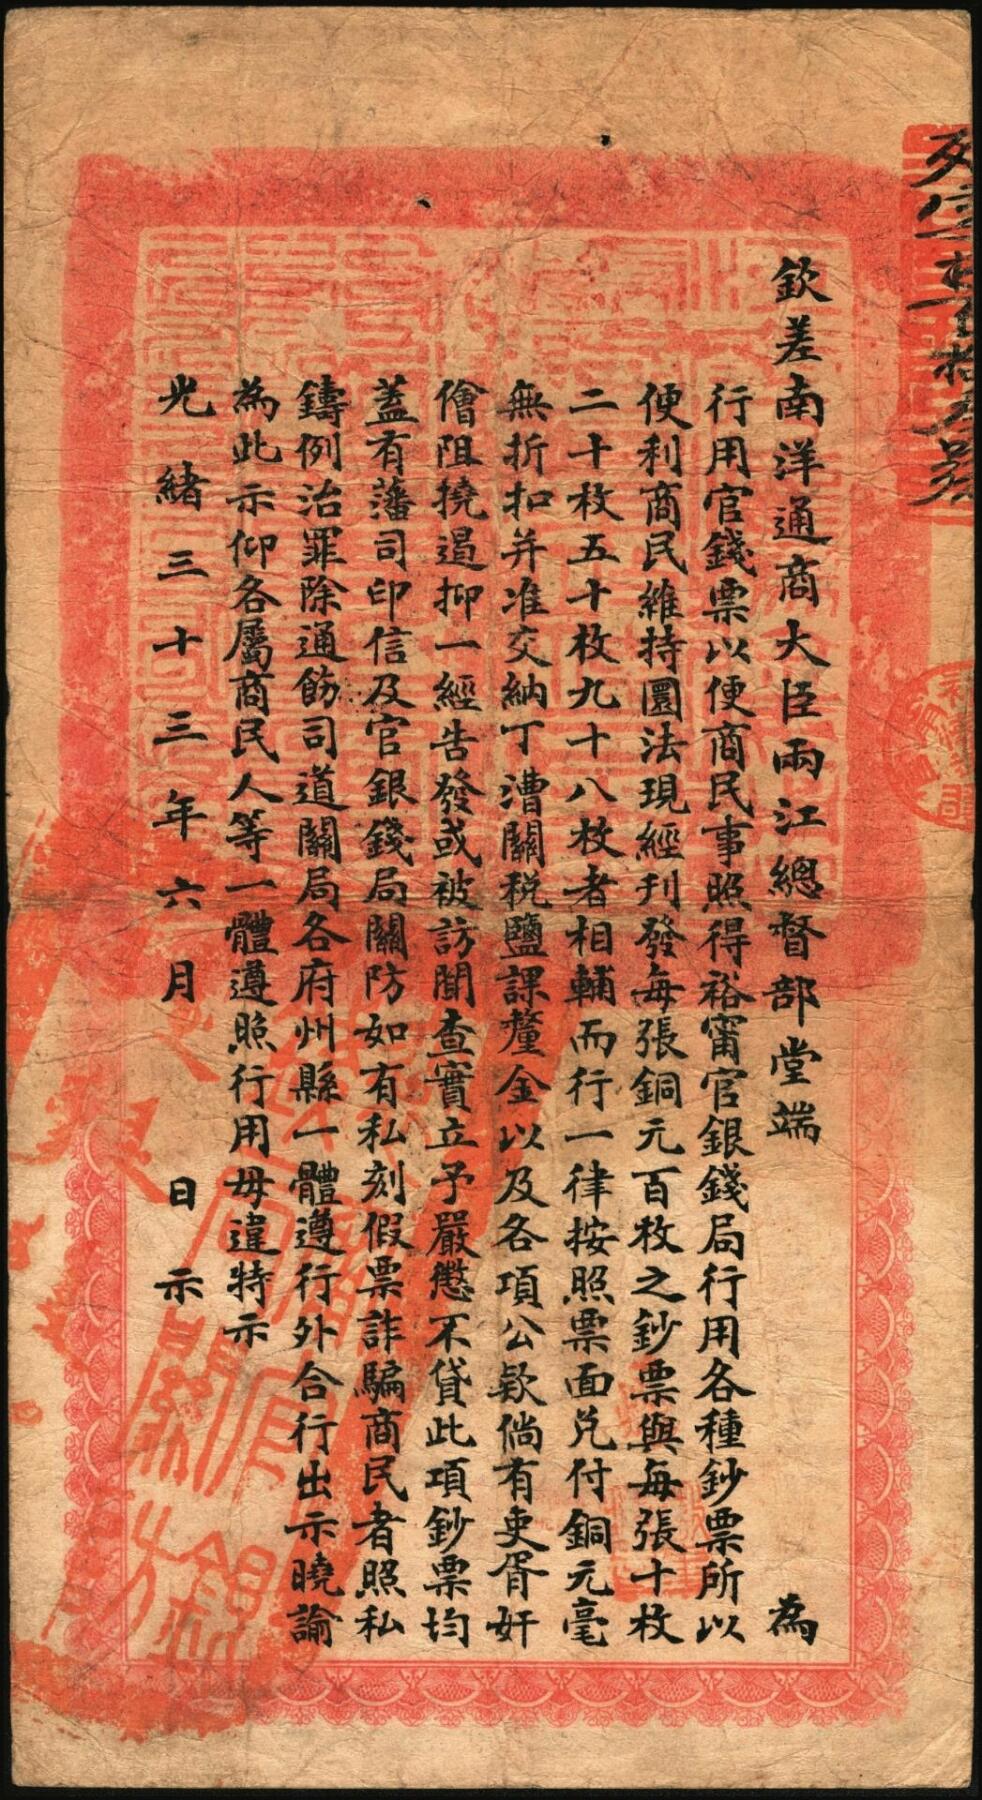 欽差南洋通商大臣兩江總督部堂端 為
行用官錢票以便商民事照得裕甯官銀錢局行用各種鈔票所以
便利商民維持圜法現經刋發每張銅元百枚之鈔票與每張十枚
二十枚五十枚九十八枚者相輔而行一律按照票面兑付銅元毫
無折扣并准交納丁漕關税鹽課釐金以及各項公欵倘有吏胥奸
儈阻撓遏抑一經告發或被訪聞查實立予嚴懲不貸此項鈔票均
蓋有藩司印信及官銀錢局關防如有私刻假票詐騙商民者照私
鑄例治罪除通飭司道關局各府州縣一體遵行外合行出示曉諭
為此示仰各屬商民人等一體遵照行用毋違特示
光緒三十三年六月 日示